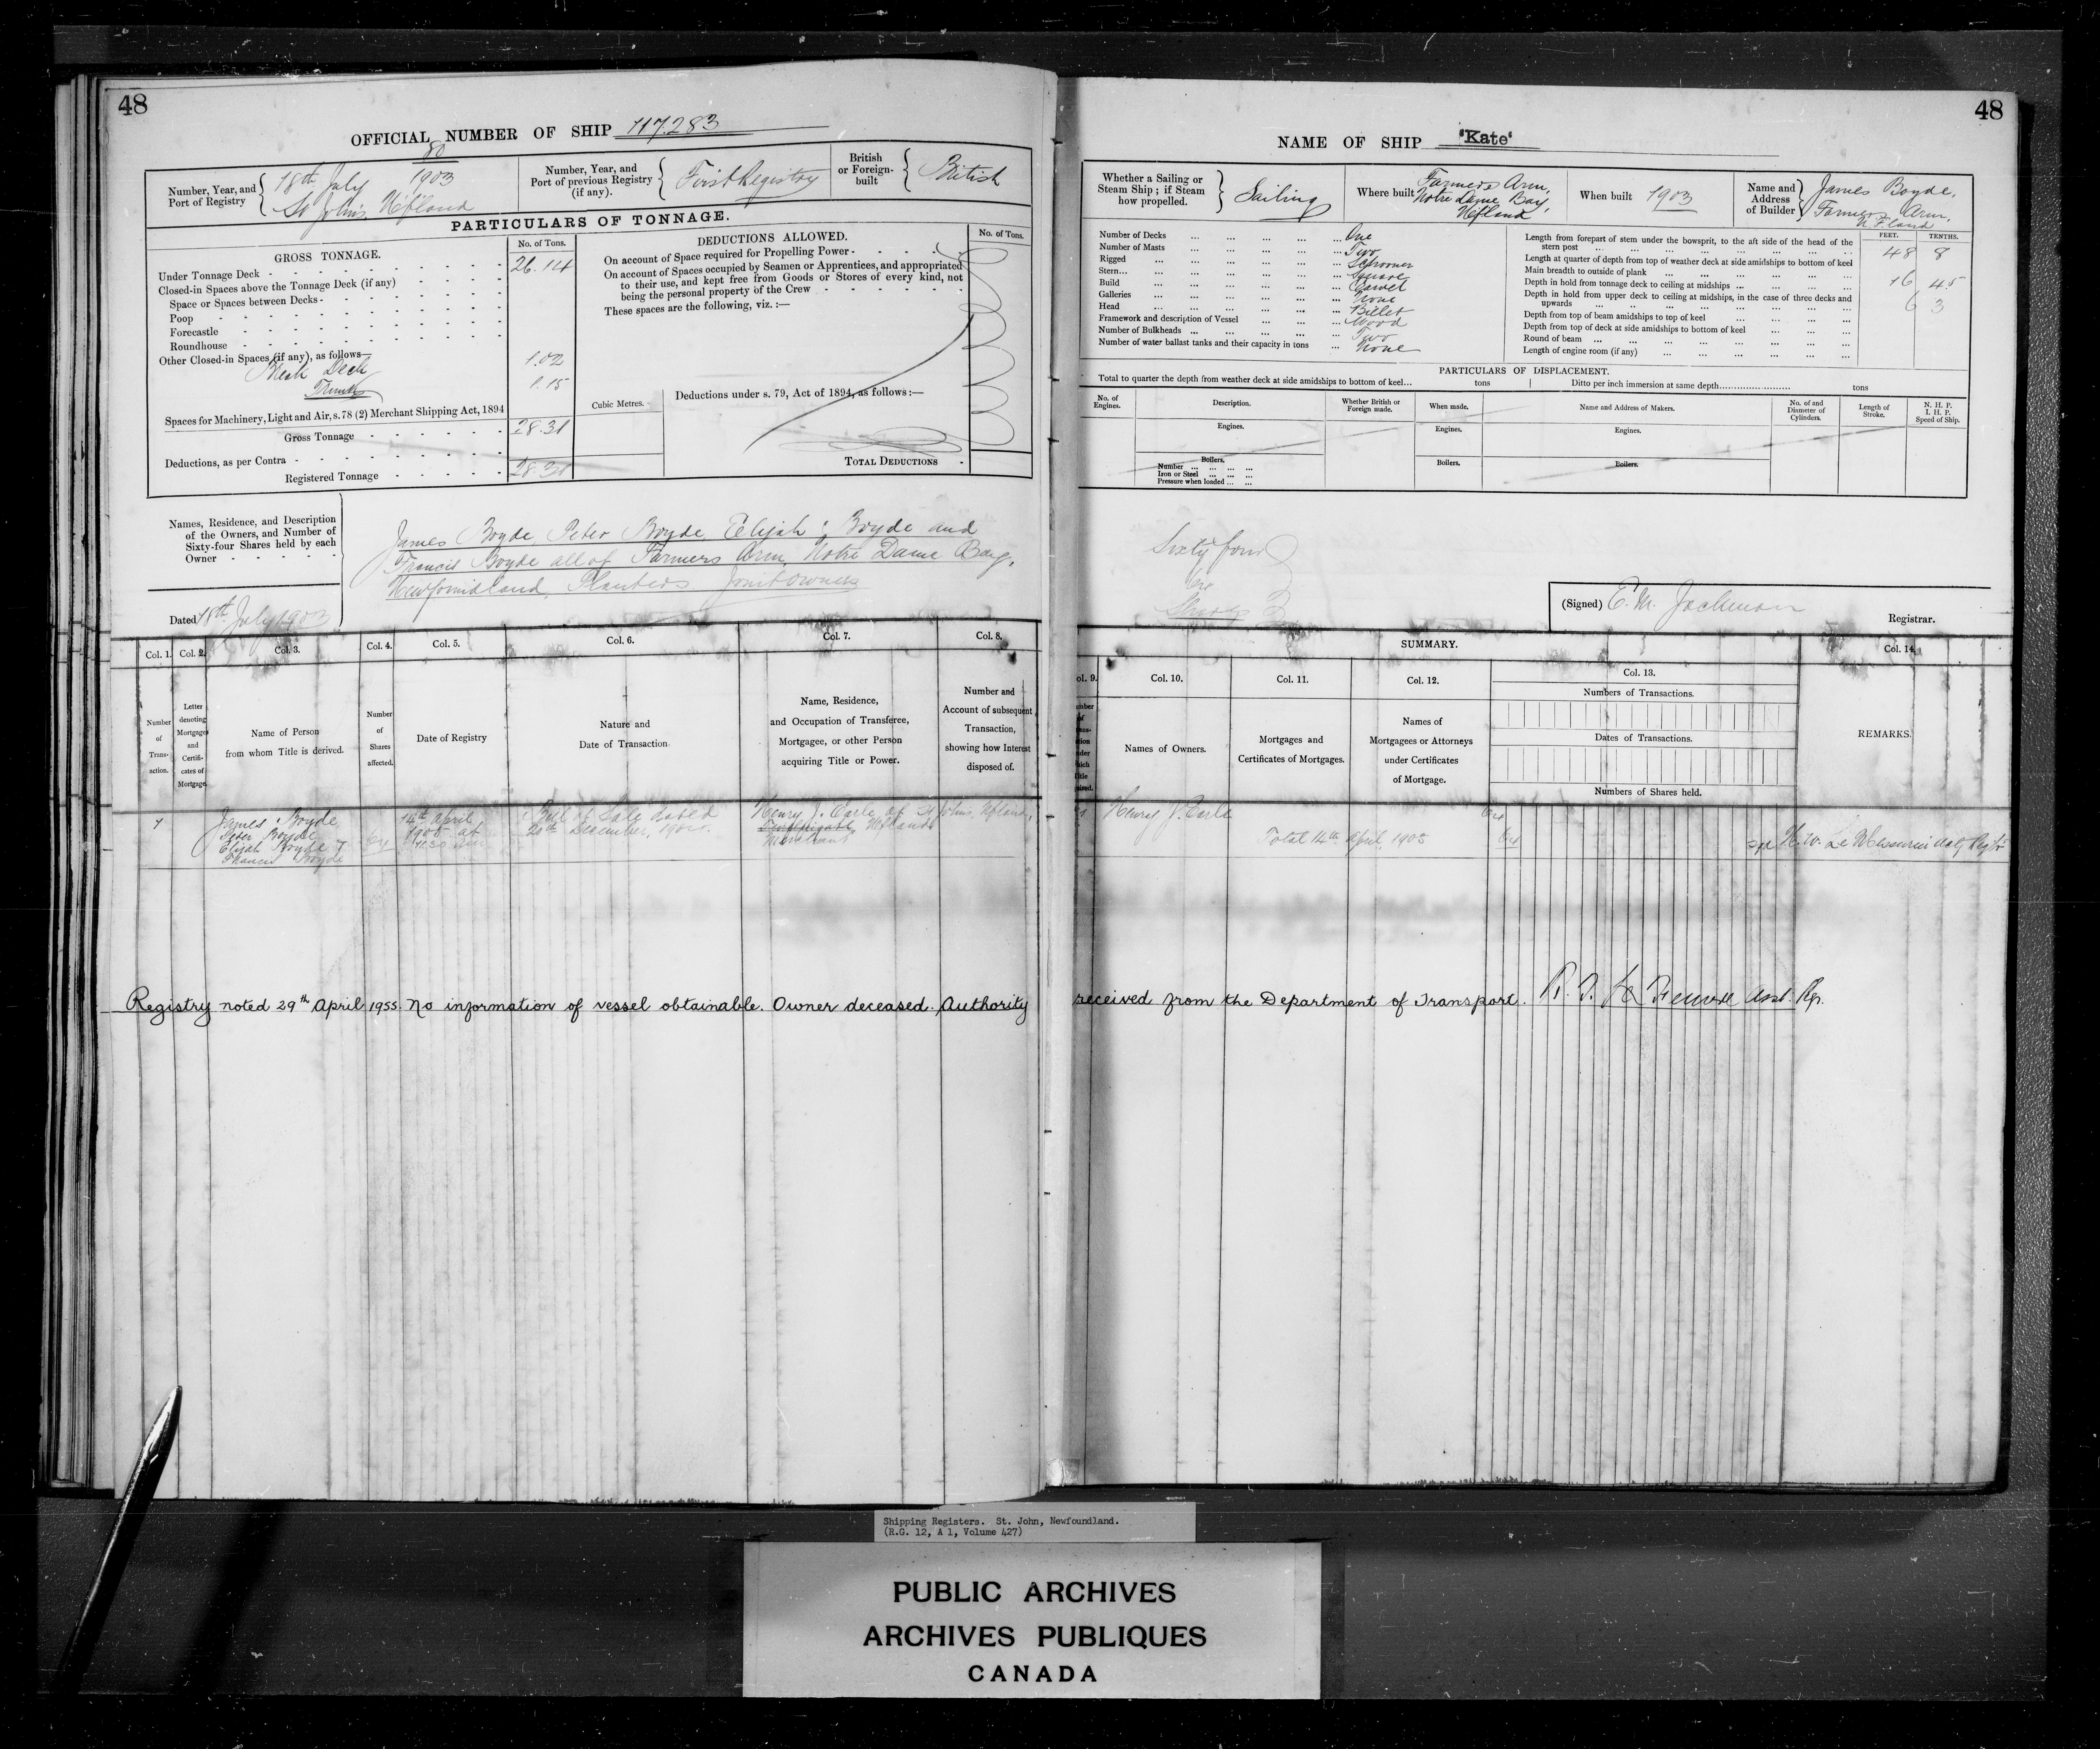 48
OFFICIAL NUMBER OF SHIP 117.283
Number, Year, and Port of Registry
80
18th July 1903
St Johns Nfland
Number, Year, and Port of previous Registry (if any).
First Registry
British or Foreign-built
British
PARTICULARS OF TONNAGE.
GROSS TONNAGE.
No. of Tons.
Under Tonnage Deck 26.14
Closed-in Spaces above the Tonnage Deck (if any)
Space or Spaces between Decks
Poop
Forecastle
Roundhouse
Other Closed-in Spaces (if any), as follows—
Break Deck 1.02
Trunk 1.15
Spaces for Machinery, Light and Air, s. 78 (2) Merchant Shipping Act, 1894
Gross Tonnage 28.31
Deductions, as per Contra
Registered Tonnage 28.31
DEDUCTIONS ALLOWED.
No. of Tons.
On account of Space required for Propelling Power
On account of Spaces occupied by Seamen or Apprentices, and appropriated
to their use, and kept free from Goods or Stores of every kind, not
being the personal property of the Crew
These spaces are the following, viz. :—
Cubic Metres.
Deductions under s. 79, Act of 1894, as follows :—
TOTAL DEDUCTIONS
Names, Residence, and Description
of the Owners, and Number of
Sixty-four Shares held by each
Owner
James Boyde, Peter Boyde, Elijah Boyde and
Francis Boyde all of Farmers Arm, Notre Dame Bay,
Newfoundland, Planters Joint Owners
Dated 18th July 1903
Col. 1.
Col. 2.
Col. 3.
Col. 4.
Col. 5.
Col. 6.
Col. 7.
Col. 8.
Number of Transaction.
Letter denoting Mortgages and Certificates of Mortgage.
Name of Person from whom Title is derived.
Number of Shares affected.
Date of Registry
Nature and Date of Transaction.
Name, Residence, and Occupation of Transferee, Mortgagee, or other Person acquiring Title or Power.
Number and Account of subsequent Transaction, showing how Interest disposed of.
1
James Boyde
Peter Boyde
Elijah Boyde &
Francis Boyde
64
14th April
1905 at
11.30 am
Bill of Sale dated
20th December, 1904.
Henry J. Earle of St Johns, Nfland,
Merchant
Registry noted 29th April 1955. No information of vessel obtainable. Owner deceased. Authority
48
NAME OF SHIP 'Kate'
Whether a Sailing or Steam Ship; if Steam how propelled.
Sailing
Where built
Farmers Arm,
Notre Dame Bay,
Nfland
When built 1903
Name and Address of Builder
James Boyde,
Farmers Arm,
N.F.land
Number of Decks One
Number of Masts Two
Rigged Schooner
Stern Square
Build Carvel
Galleries None
Head Billet
Framework and description of Vessel Wood
Number of Bulkheads Two
Number of water ballast tanks and their capacity in tons None
FEET. TENTHS.
Length from forepart of stem under the bowsprit, to the aft side of the head of the
stern post 48 8
Length at quarter of depth from top of weather deck at side amidships to bottom of keel
Main breadth to outside of plank 16 45
Depth in hold from tonnage deck to ceiling at midships 6 3
Depth in hold from upper deck to ceiling at midships, in the case of three decks and
upwards
Depth from top of beam amidships to top of keel
Depth from top of deck at side amidships to bottom of keel
Round of beam
Length of engine room (if any)
PARTICULARS OF DISPLACEMENT.
Total to quarter the depth from weather deck at side amidships to bottom of keel... tons
Ditto per inch immersion at same depth tons
No. of Engines.
Description.
Whether British or Foreign made.
When made.
Name and Address of Makers.
No. of and Diameter of Cylinders.
Length of Stroke.
N. H. P.
I. H. P.
Speed of Ship.
Engines.
Engines.
Engines.
Boilers.
Number
Iron or Steel
Pressure when loaded
Boilers.
Boilers.
Sixty four
Shares
(Signed) E. M. Jackman
Registrar.
SUMMARY.
Col. 9.
Col. 10.
Col. 11.
Col. 12.
Col. 13.
Col. 14.
Names of Owners.
Mortgages and Certificates of Mortgages.
Names of Mortgagees or Attorneys under Certificates of Mortgage.
Numbers of Transactions.
Dates of Transactions.
Numbers of Shares held.
REMARKS.
1
Henry J. Earle 64
Total 14th April, 1905 64
sgd H. W. Le Messurier
received from the Department of Transport.
Asst. Rgr.
Shipping Registers. St. John, Newfoundland.
(R.G. 12, A 1, Volume 427)
PUBLIC ARCHIVES
ARCHIVES PUBLIQUES
CANADA